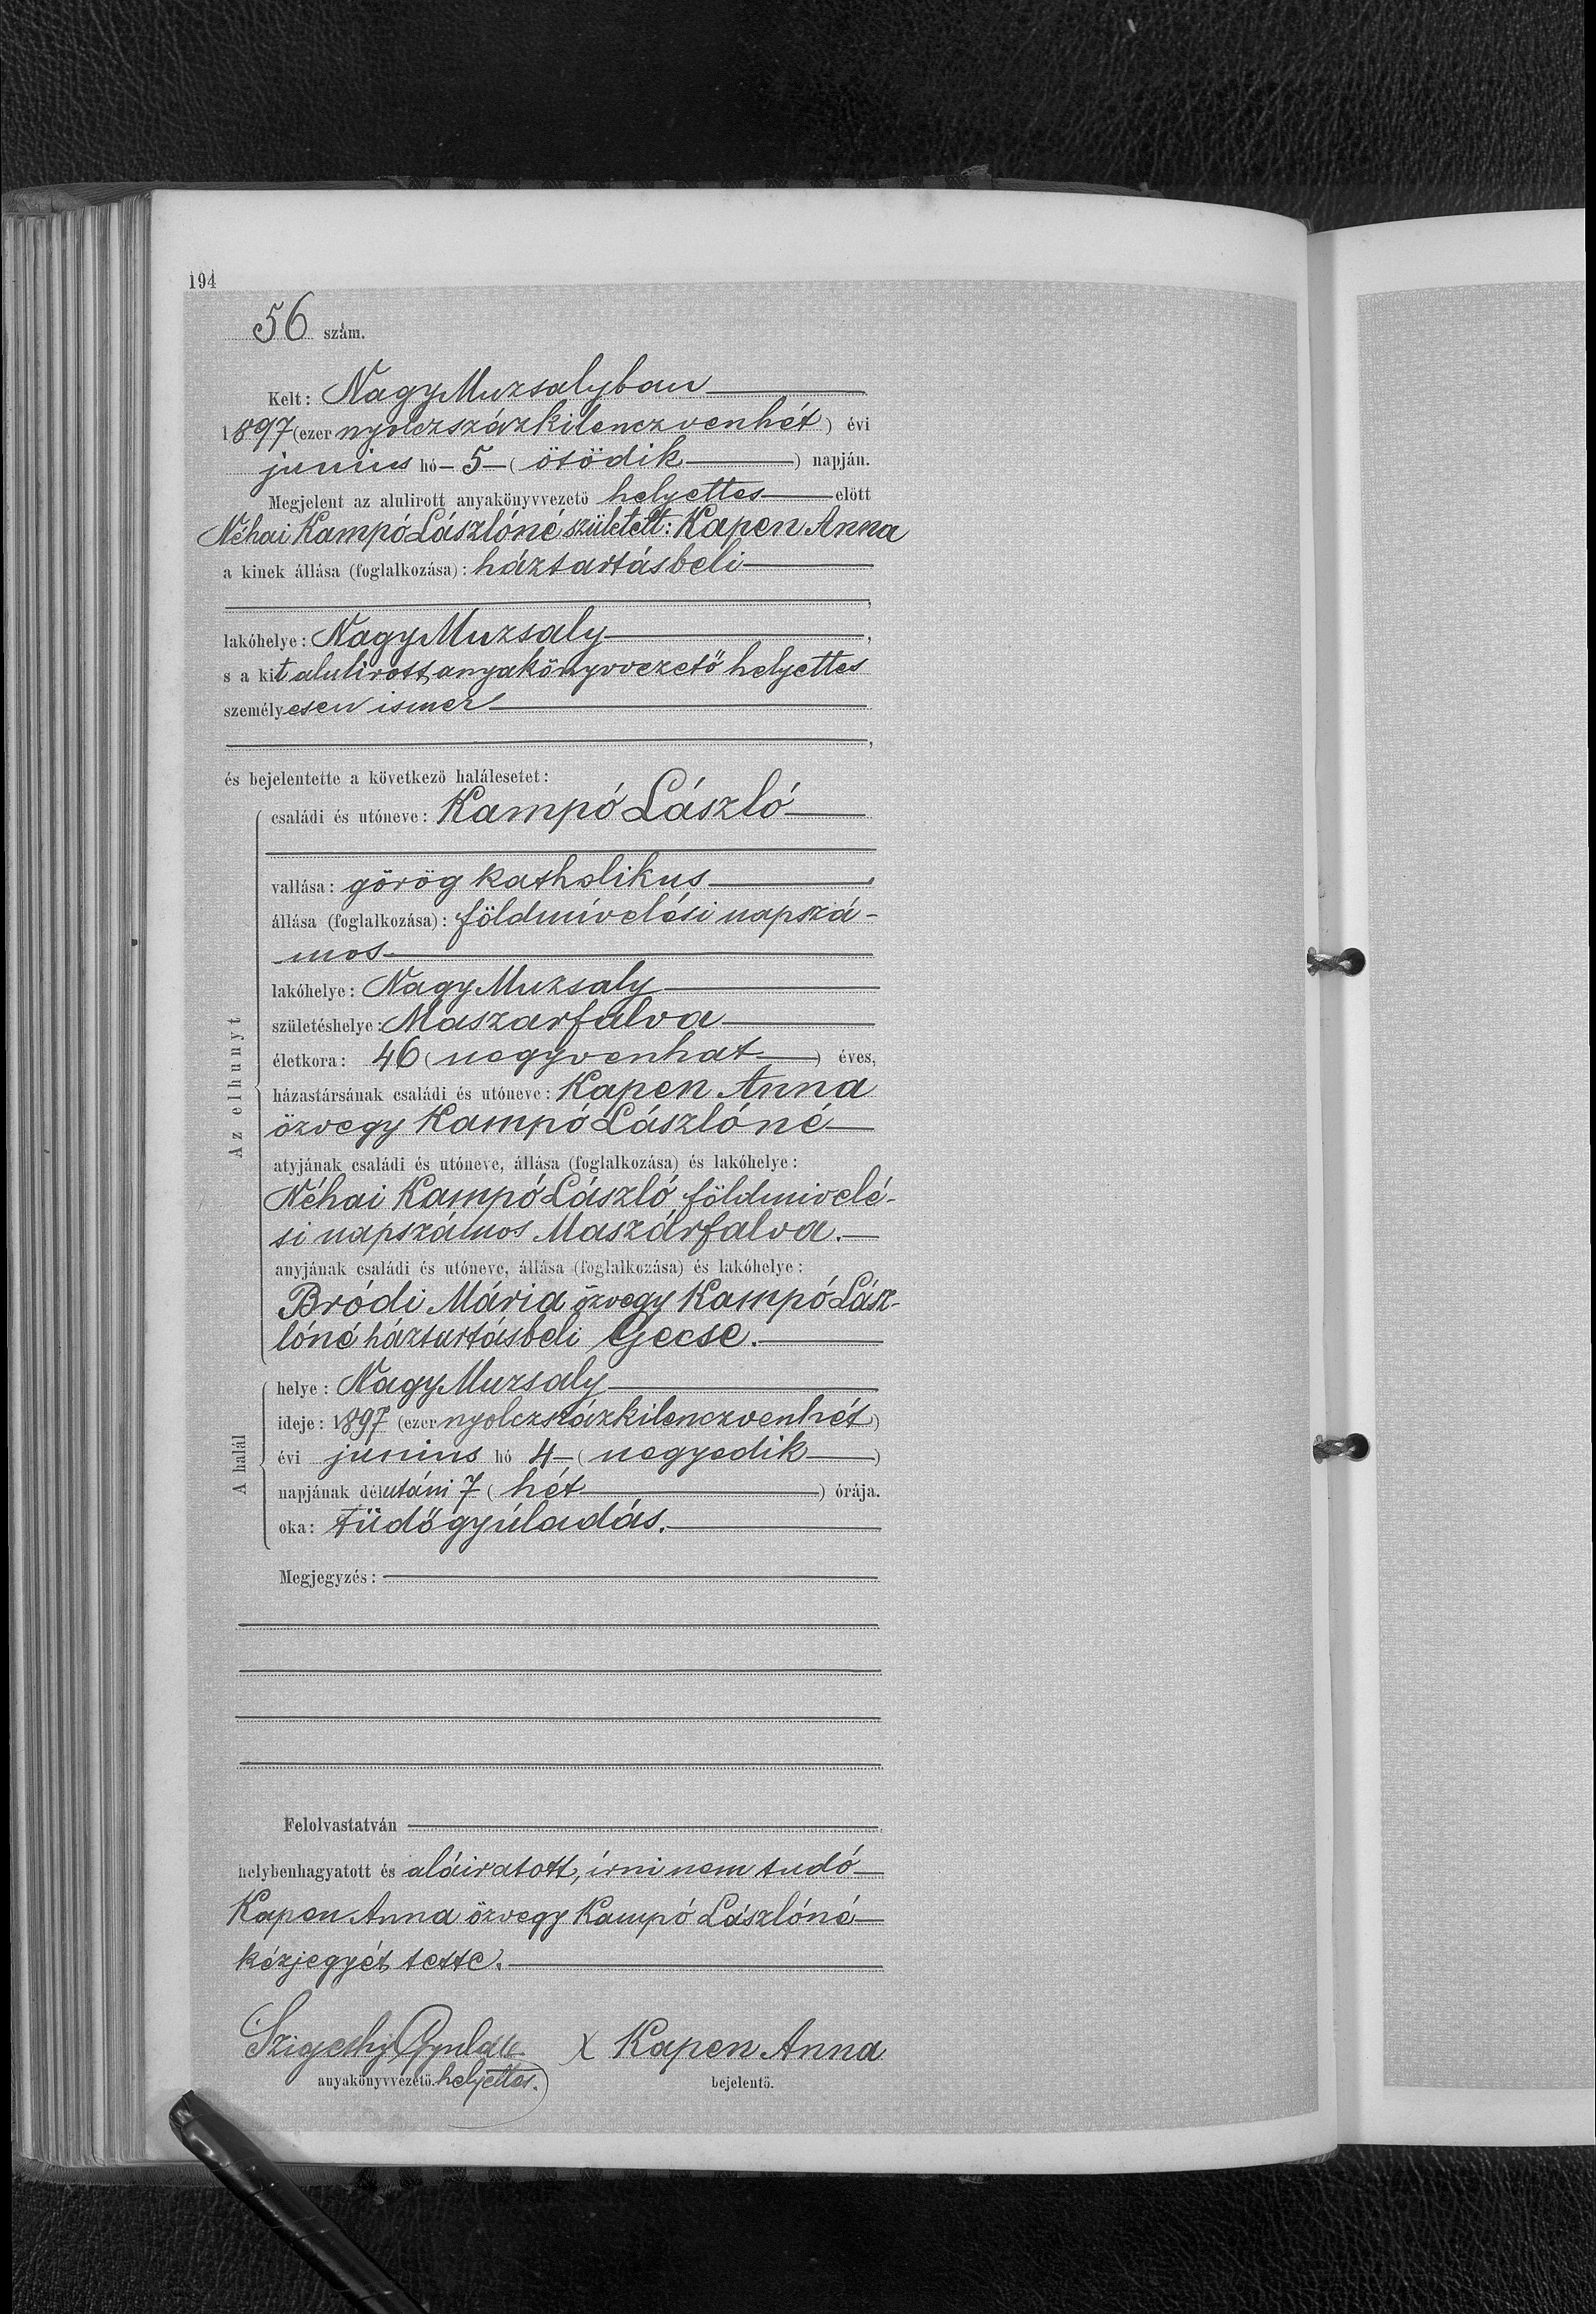 194
56 szám.
Kelt: NagyMuzsalyban
1897 (ezer nyolczszázkilenczvenhét) évi
junius hó 5 (ötödik) napján.
Megjelent az alulirott anyakönyvvezető helyettes előtt
Néhai Kampó Lászlóné született: Kapen Anna
a kinek állása (foglalkozása): háztartásbeli
lakóhelye: NagyMuzsaly,
s a kit alulirott anyakönyvvezető helyettes
személyesen ismer
és bejelentette a következő halálesetet:
Az elhunyt
családi és utóneve: Kampó László
vallása: görög katholikus
állása (foglalkozása): földmívelési napszá-
mos
lakóhelye: NagyMuzsaly
születéshelye: Maszarfalva
életkora: 46 (negyvenhat) éves,
házastársának családi és utóneve: Kapen Anna
özvegy Kampó Lászlóné
atyjának családi és utóneve, állása (foglalkozása) és lakóhelye:
Néhai Kampó László földmivelé-
si napszámos Maszárfalva.
anyjának családi és utóneve, állása (foglalkozása) és lakóhelye:
Bródi Mária özvegy Kampó Lász-
lóné háztartásbeli Gecse.
A halál
helye: NagyMuzsaly
ideje: 1897 (ezer nyolczszázkilenczvenhét)
évi junius hó 4 (negyedik)
napjának délutáni 7 (hét) órája.
oka: tüdőgyúladás.
Megjegyzés:
Felolvastatván
helybenhagyatott és aláiratott, írni nem tudó
Kapen Anna özvegy Kampó Lászlóné
kézjegyét tette.
Szigethy Gyula X Kapen Anna
anyakönyvvezető helyettes. bejelentő.